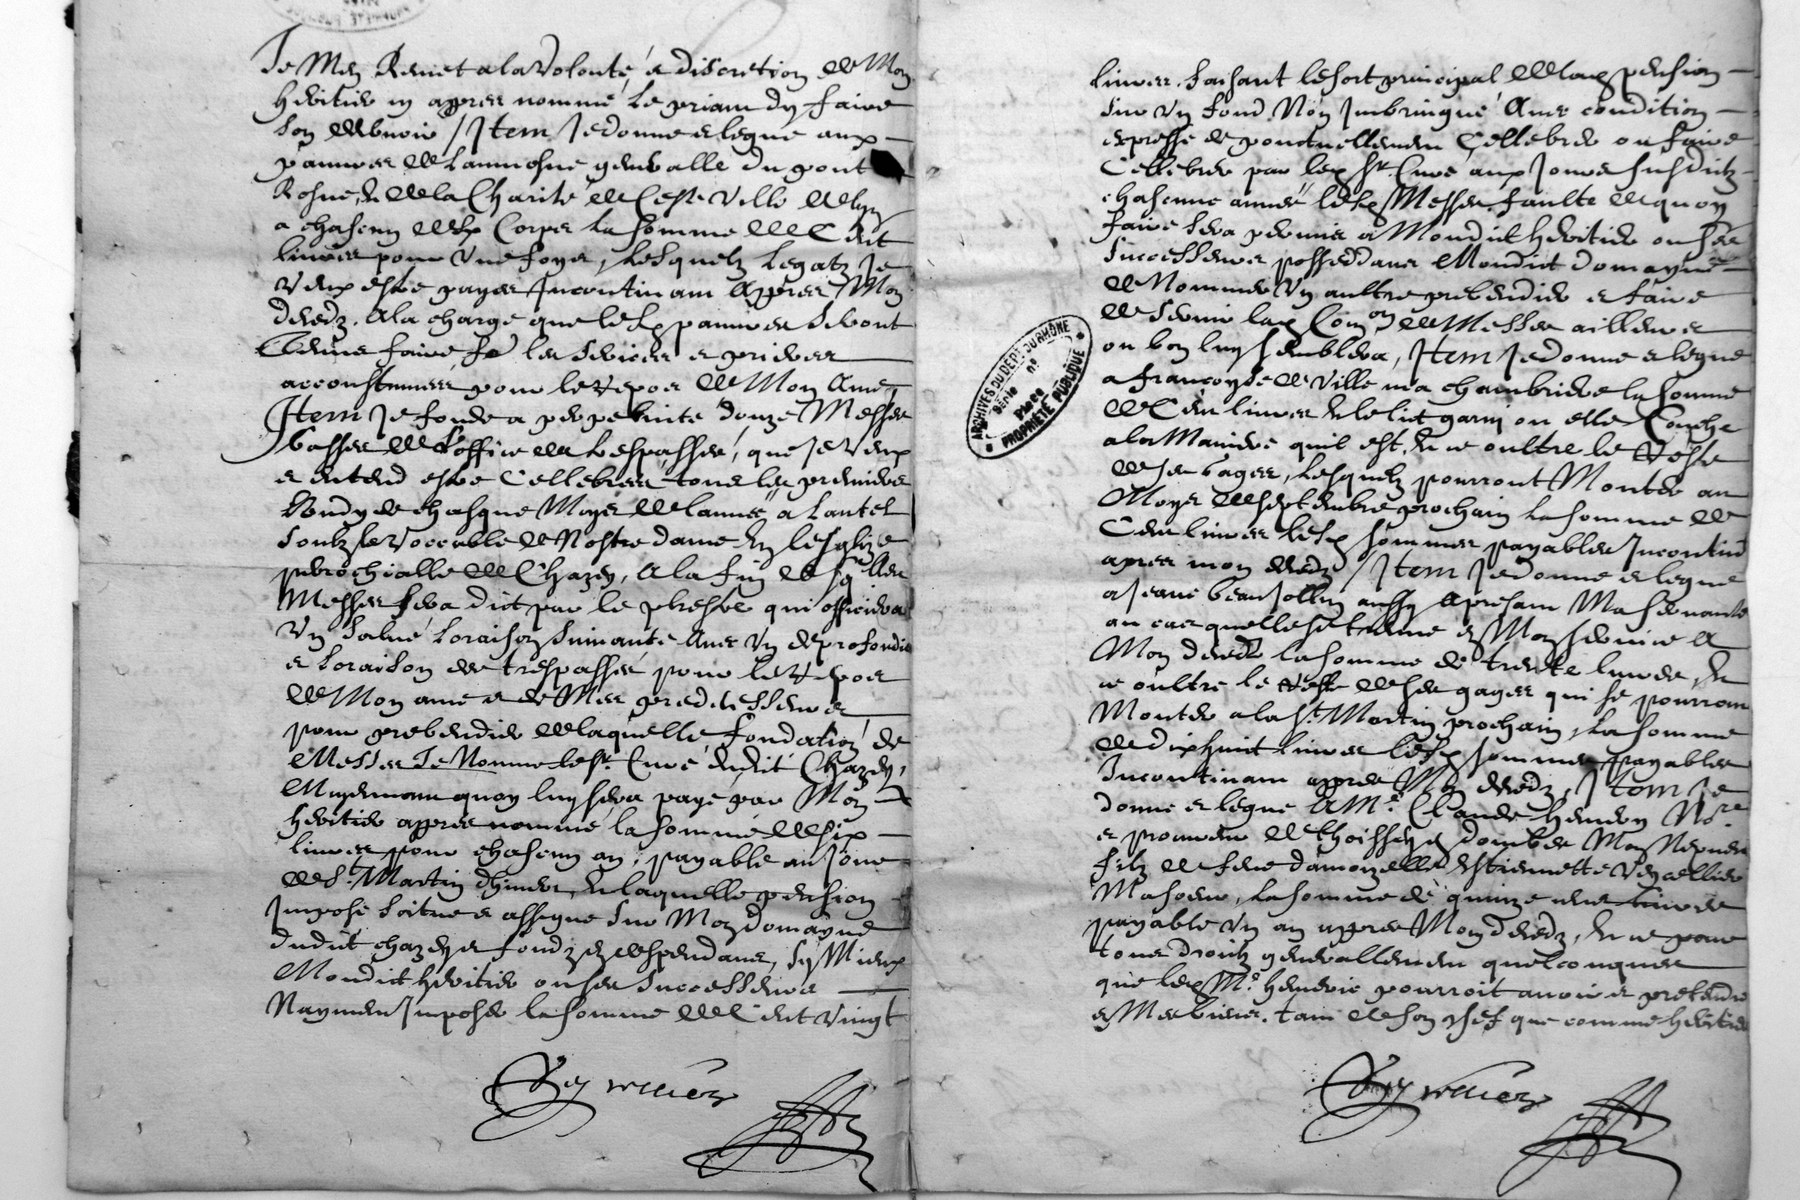 Je Men Remet a la Volonté & discretion de Mon
heritier cy apprez nommé Le priant dy faire
son debvoir / Item Je donne & legue aux
pauvres de Laumosne generalle du pont
Rosne, & de la Charité de Ceste Ville de Lyon
a chascun desd Corps La somme de Cent
livres pour Une foys, Lesquelz Legatz Je
Veux estre payes Incontinant Apprez Mon
decedz. A la charge que lesd pauvres seront
Tenus faire les services & prieres
accoustumees pour le repos de Mon Ame
Item Je fonde a perpetuité douze Messes
basses de Loffice des trespasses, que Je Veux
& entend estre Cellebrees tous les premiers
lundy de chasque Moys de Lannee a Lautel
soubz le Vocable de Nostre dame En lesglize
parochialle de Chazey, A la fin desquelles
Messes sera dict par le prestre qui officiera
Un salve Loraison suivante Avec Un de profondis
& Loraison des trespasses pour le repos
de Mon ame & de Mes predecesseurs
pour prebendier de laquelle fondation de
Messes Je Nomme le sr. Curé dudit Chazey,
Moyennant quoy luy sera payé par Mon
heritier apprez nommé la somme de six
livres pour chascun an, payable au Jour
de St. Martin dhiver, En laquelle pension
Impose situe & assigne sur Mon domayne
dudit chazey & fondz en deppendans, sy Mieux
Mondict heritier ou ses successeurs
Nayment Imposer la somme de Cent Vingt
livres faisant le sort principal de lad pension
sur Un fond Non Imbringué Avec condition
expresse de ponctuellement Cellebrer ou faire
Cellebrer par led sr. Curé aux Jours susdictz
chascune année lesd Messes, faulte de quoy
faire sera permis a Mondict heritier ou ses
successeurs possedans Mondict domayne
de Nommer Un aultre prebendier & faire
deservir lad Com.on de Messes ailleurs
ou bon luy semblera, Item Je donne & legue
a francoyse de Ville ma chambriere la somme
de Cent livres & le lict garny ou elle Couche
a la Maniere quil est, & ce oultre le reste
de ses gages, Lesquelz pourront Monter au
Moys de septembre prochain La somme de
Cent livres lesd sommes payables Incontinent
apres mon decedz / Item Je donne & legue
a Jeane beaujollin aussy A present Ma servante
au cas quelle se treuve en Mon service a
Mon decedz la somme de trente livres, &
ce oultre le reste de ses gages qui se pourront
Monter a la St. Martin prochain, La somme
de dixhuict livres lesd sommes payables
Incontinant apprez Mon decedz, Item Je
donne & legue A Me. Claude henery No.re
& procureur de thoissey en dombes Mon Nepveu
filz de feue damoyzelle Estiennette
Ma soeur, La somme de quinze cens livres
payable Un an apprez Mon decedz, & ce pour
tous droictz generallement quelconques
que led Me. henerie pourroit avoir & pretendre
en Mes biens, tant de son chef que comme heritier
ARCHIVES DU DÉPT DU RHÔNE
Série nº
Pièce
PROPRIÉTÉ PUBLIQUE